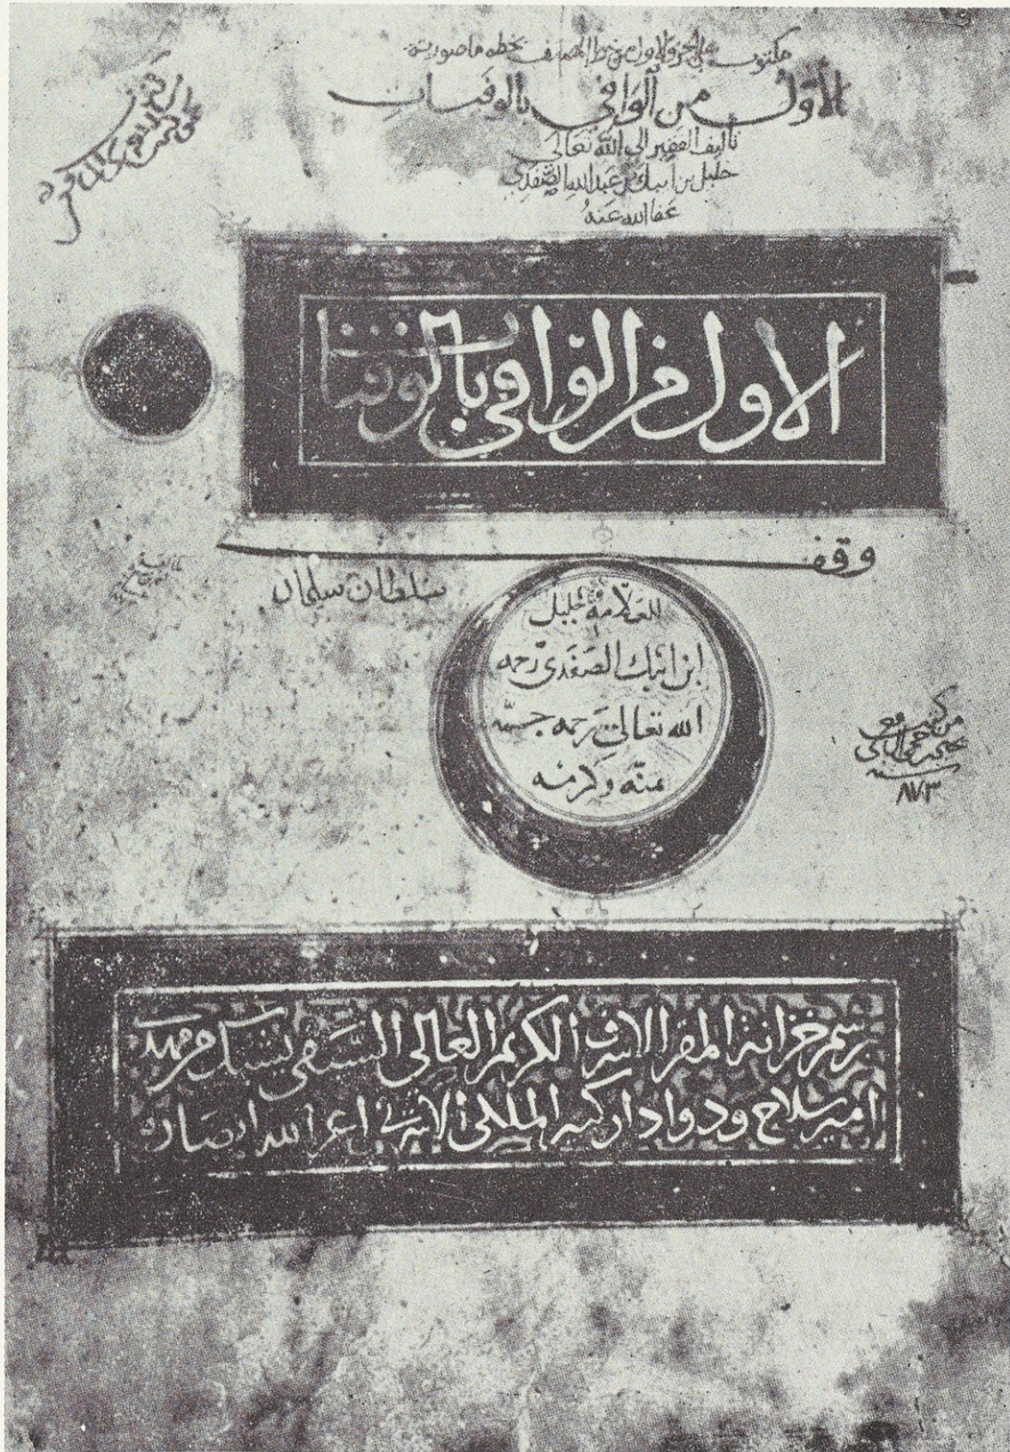 مكتوب على الجزء الاول من خط المصنف بخطه ما صورته
الأول من الوافي بالوفيات
تأليف الفقير الى الله تعالى
خليل بن ايبك بن عبد الله الصفدي
عفا الله عنه
الاول من الوافي بالوفيات
وقف
سلطان سليمان
للعلامة خليل
ابن ايبك الصفدي رحمه
الله تعالى رحمه
منه وكرمه
من كتب
سنة
٨٧٣
برسم خزانة المقر الاشرف الكريم العالي السيفي يشبك من مهدي
امير سلاح ودوادار كبير الملكي الاشرفي اعز الله انصاره